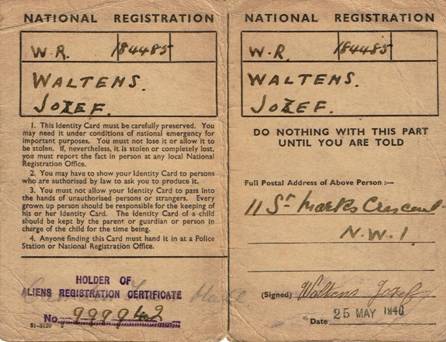 NATIONAL REGISTRATION
W.R. 184485
WALTENS.
JOZEF.
1. This Identity Card must be carefully preserved. You
may need it under conditions of national emergency for
important purposes. You must not lose it or allow it to
be stolen. If, nevertheless, it is stolen or completely lost,
you must report the fact in person at any local National
Registration Office.
2. You may have to show your Identity Card to persons
who are authorised by law to ask you to produce it.
3. You must not allow your Identity Card to pass into
the hands of unauthorised persons or strangers. Every
grown up person should be responsible for the keeping of
his or her Identity Card. The Identity Card of a child
should be kept by the parent or guardian or person in
charge of the child for the time being.
4. Anyone finding this Card must hand it in at a Police
Station or National Registration Office.
HOLDER OF
ALIENS REGISTRATION CERTIFICATE
No
51-3120
NATIONAL REGISTRATION
W.R. 184485
WALTENS.
JOZEF.
DO NOTHING WITH THIS PART
UNTIL YOU ARE TOLD
Full Postal Address of Above Person :—
11 St Marks Crescent
N.W.1.
(Signed) Waltens Jozef
Date 25 MAY 1940